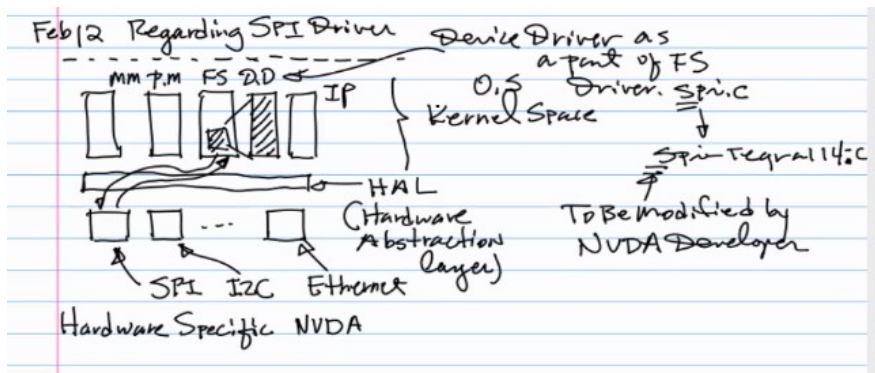 Feb 12 Regarding SPI Driver
Device Driver as
a part of FS
mm p.m FS D.D
IP
O.S
Kernel Space
Driver. Spi.c
Spi-Tegra114.c
HAL
(Hardware
Abstraction
layer)
To Be modified by
NVDA Developer
...
SPI I2C Ethernet
Hardware Specific NVDA